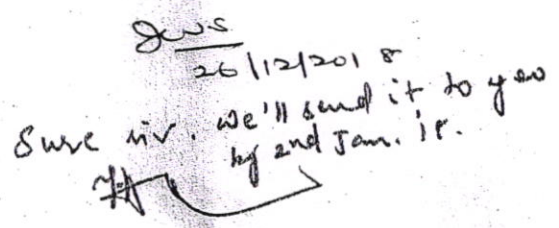 26/12/2018
Sure sir. We'll send it to you
by 2nd Jan. 18.